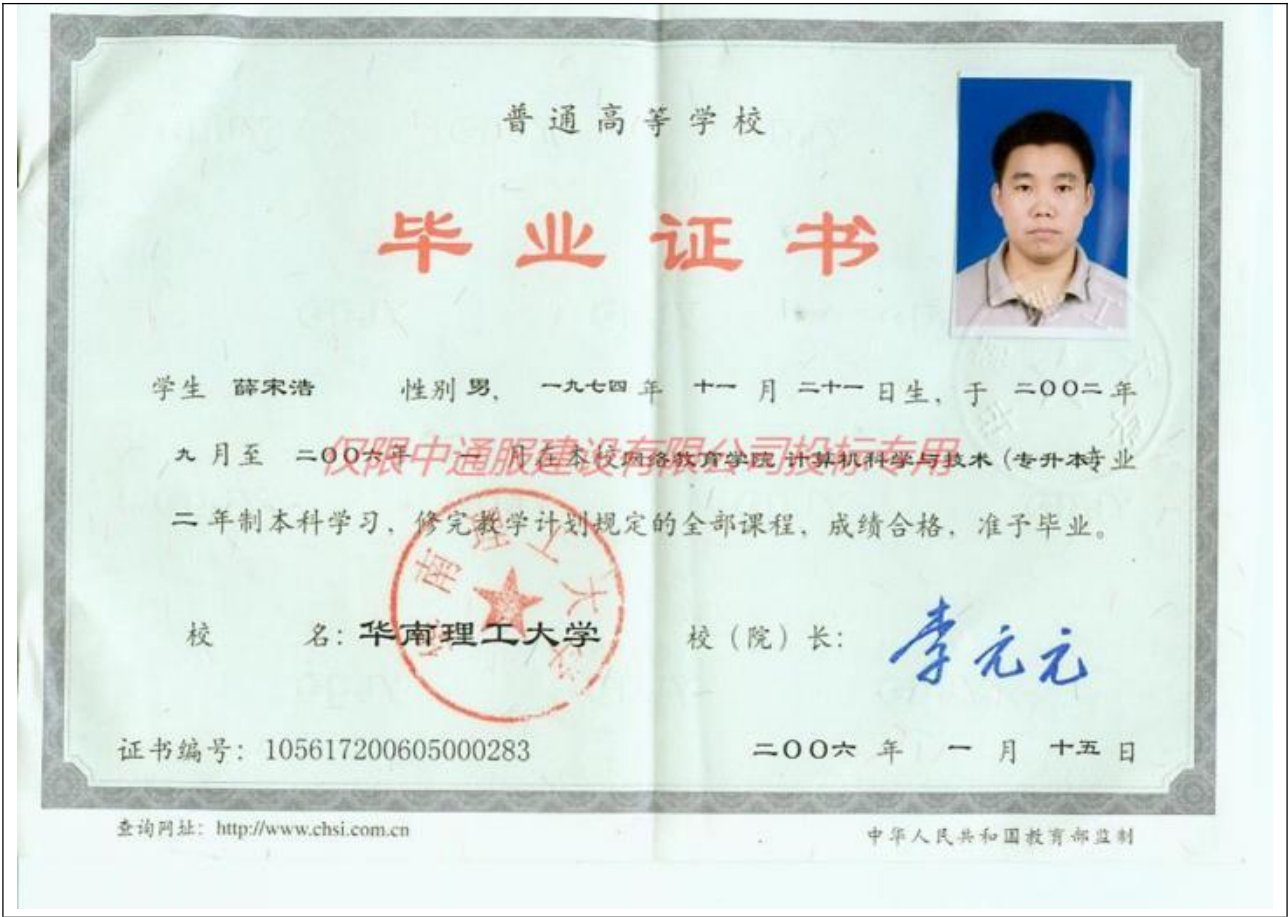 普通高等学校
毕业证书
学生 薛宋浩 性别 男, 一九七四 年 十一 月 二十一 日生, 于 二〇〇二 年
九 月至 二〇〇六 年 一 月在本校 网络教育学院 计算机科学与技术 (专升本) 专业
仅限中通服建设有限公司投标专用
二 年制本科学习, 修完教学计划规定的全部课程, 成绩合格, 准予毕业。
华南理工大学
校 名: 华南理工大学 校 (院) 长: 李元元
证书编号: 105617200605000283 二〇〇六 年 一 月 十五 日
查询网址: http://www.chsi.com.cn 中华人民共和国教育部监制